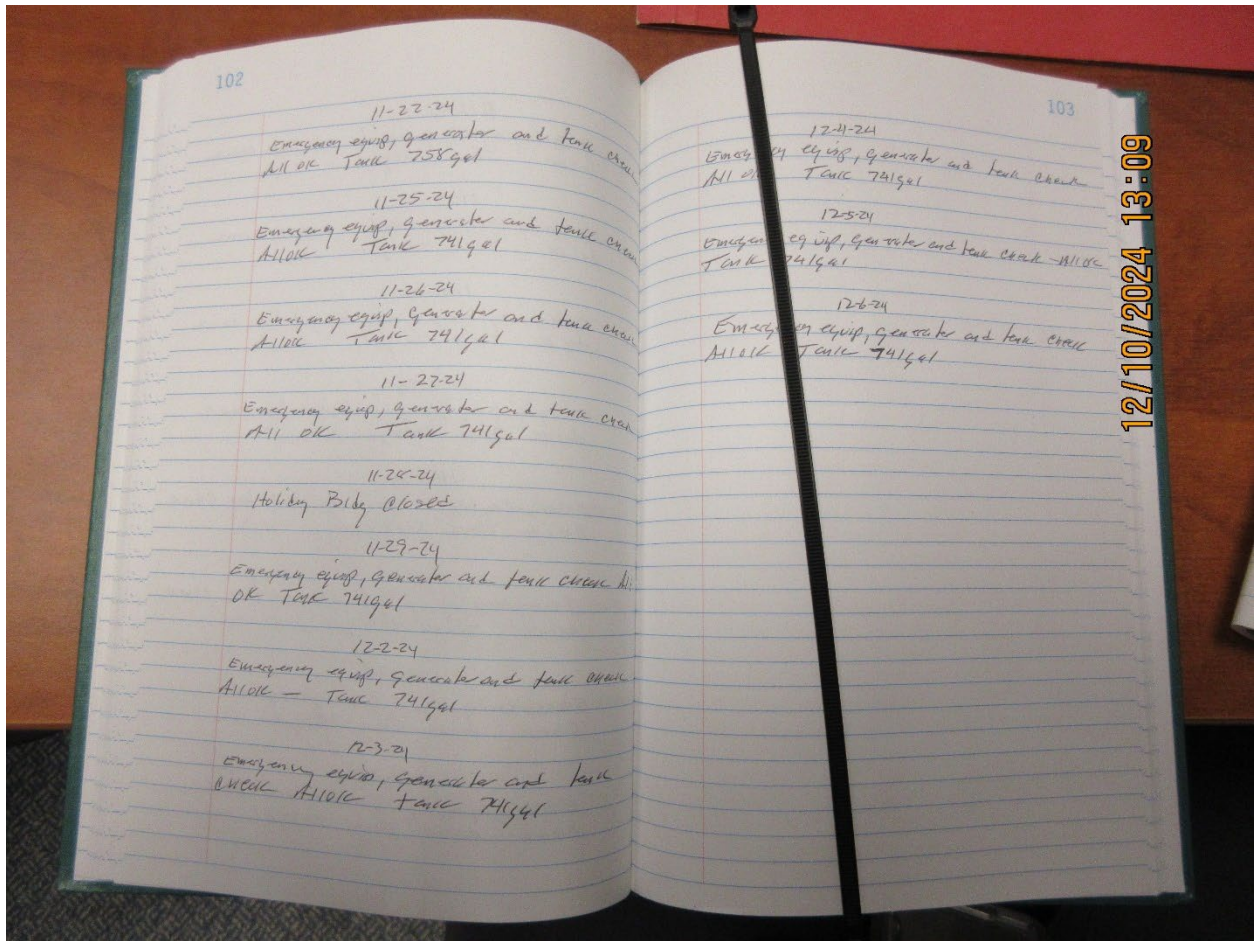 102
11-22-24
Emergency equip, generator and tank check
All OK Tank 758 gal
11-25-24
Emergency equip, generator and tank check
All OK Tank 741 gal
11-26-24
Emergency equip, generator and tank check
All OK Tank 741 gal
11-27-24
Emergency equip, generator and tank check
All OK Tank 741 gal
11-28-24
Holiday Bldg Closed
11-29-24
Emergency equip, generator and tank check All
OK Tank 741 gal
12-2-24
Emergency equip, generator and tank check
All OK — Tank 741 gal
12-3-24
Emergency equip, generator and tank
check All OK Tank 741 gal
103
12-4-24
Emergency equip, generator and tank check
All OK Tank 741 gal
12-5-24
Emergency equip, generator and tank check - All OK
Tank 741 gal
12-6-24
Emergency equip, generator and tank check
All OK Tank 741 gal
12/10/2024 13:09